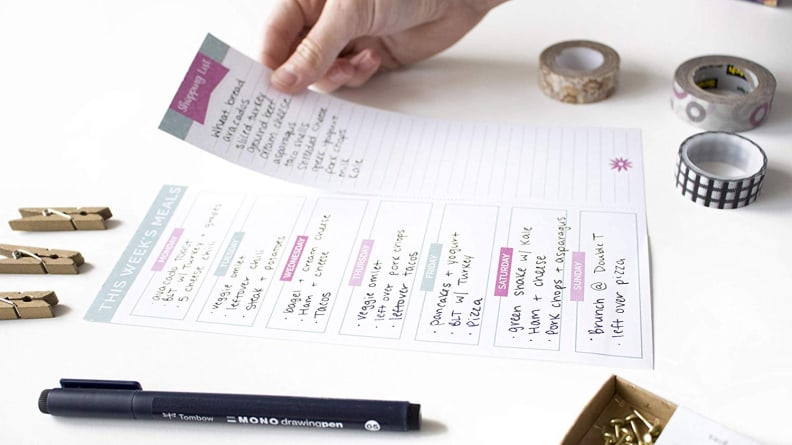 Shopping List
Wheat bread
avocados
sliced turkey
ground beef
cream cheese
asparagus
taco shells
shredded cheese
greek yogurt
pork chops
milk
kale
THIS WEEK'S MEALS
MONDAY
avocado toast
· BLT w/ Turkey + grapes
· 5 cheese chili
TUESDAY
· veggie omlet
· leftover chili
· steak + potatoes
WEDNESDAY
· bagel + cream cheese
· Ham + cheese
· Tacos
THURSDAY
· veggie omlet
· left over pork chops
· leftover tacos
FRIDAY
· pancakes + yogurt
· BLT w/ Turkey
· Pizza
SATURDAY
· green shake w/ Kale
· Ham + cheese
· Pork chops + asparagus
SUNDAY
· Brunch @ Double T
· left over pizza
Tombow MONO drawingpen 05